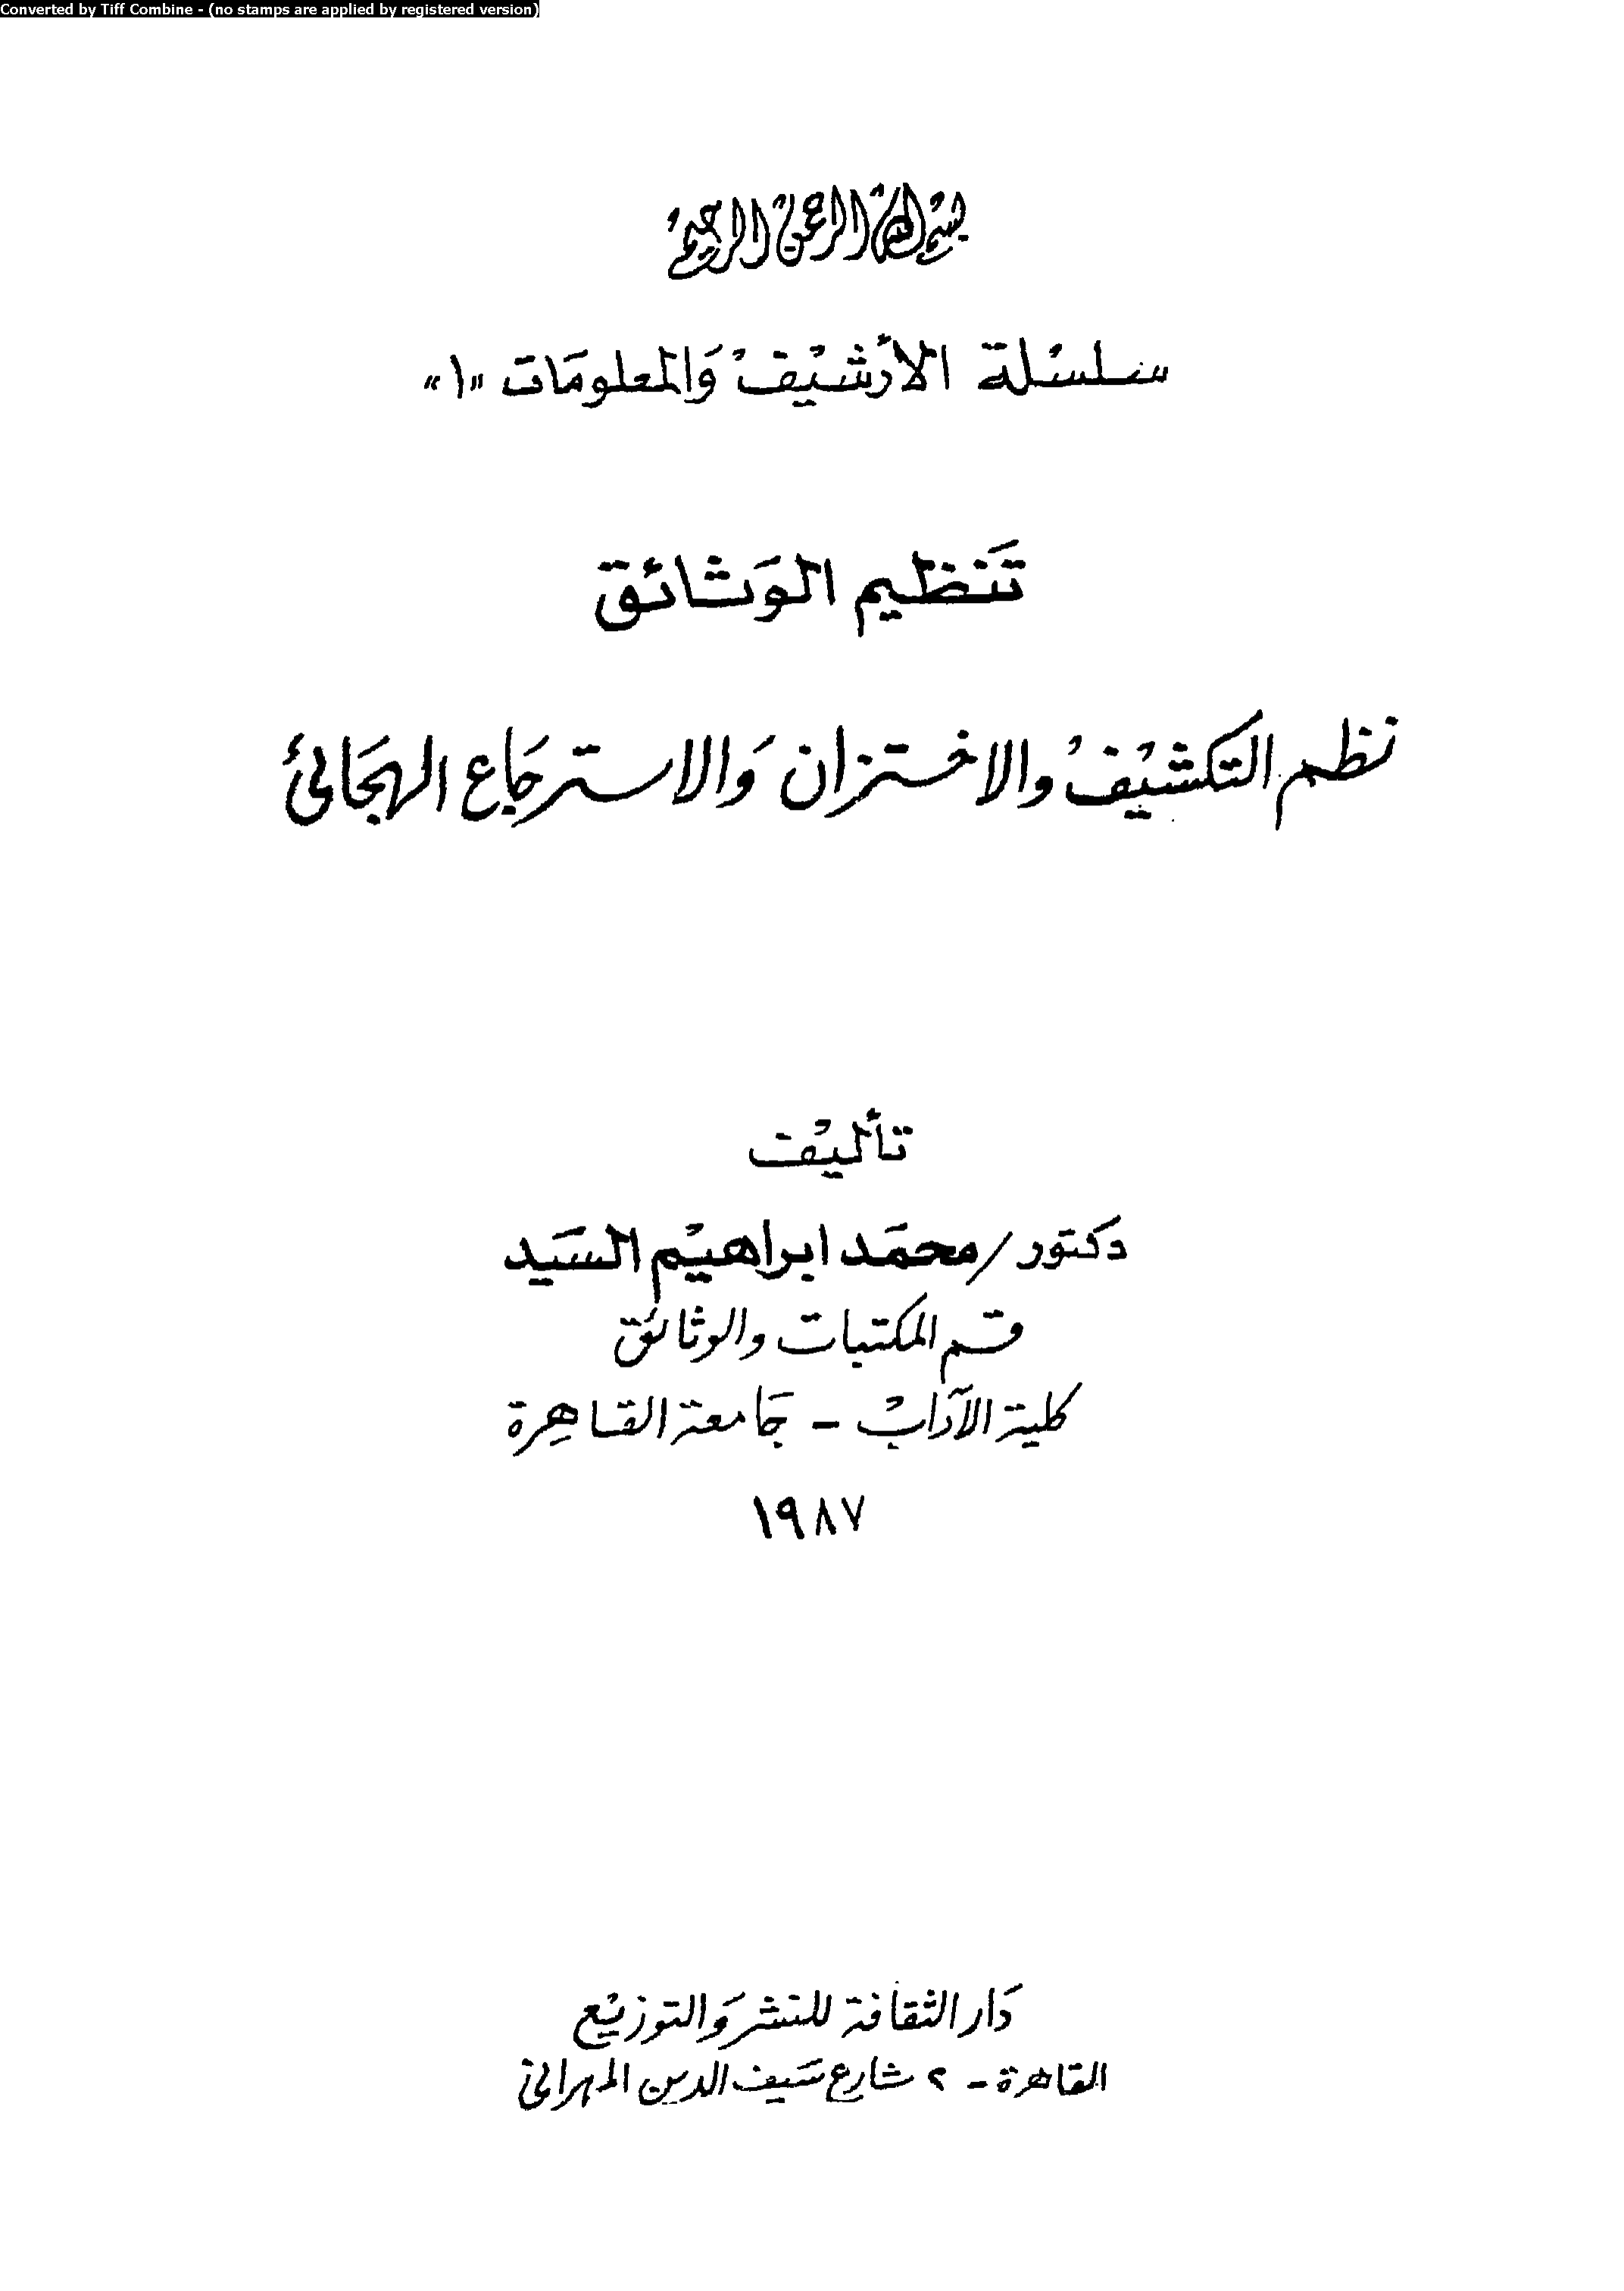 Converted by Tiff Combine - (no stamps are applied by registered version)
بسم الله الرحمن الرحيم
سلسلة الأرشيف والمعلومات "١"
تنظيم الوثائق
نظم التكشيف والاختزان والاسترجاع الهجائئ
تأليف
دكتور/محمد ابراهيم السيد
قسم المكتبات والوثائق
كلية الآداب - جامعة القاهرة
١٩٨٧
دار الثقافة للنشر والتوزيع
القاهرة - ٢ شارع سيف الدين المهرانى